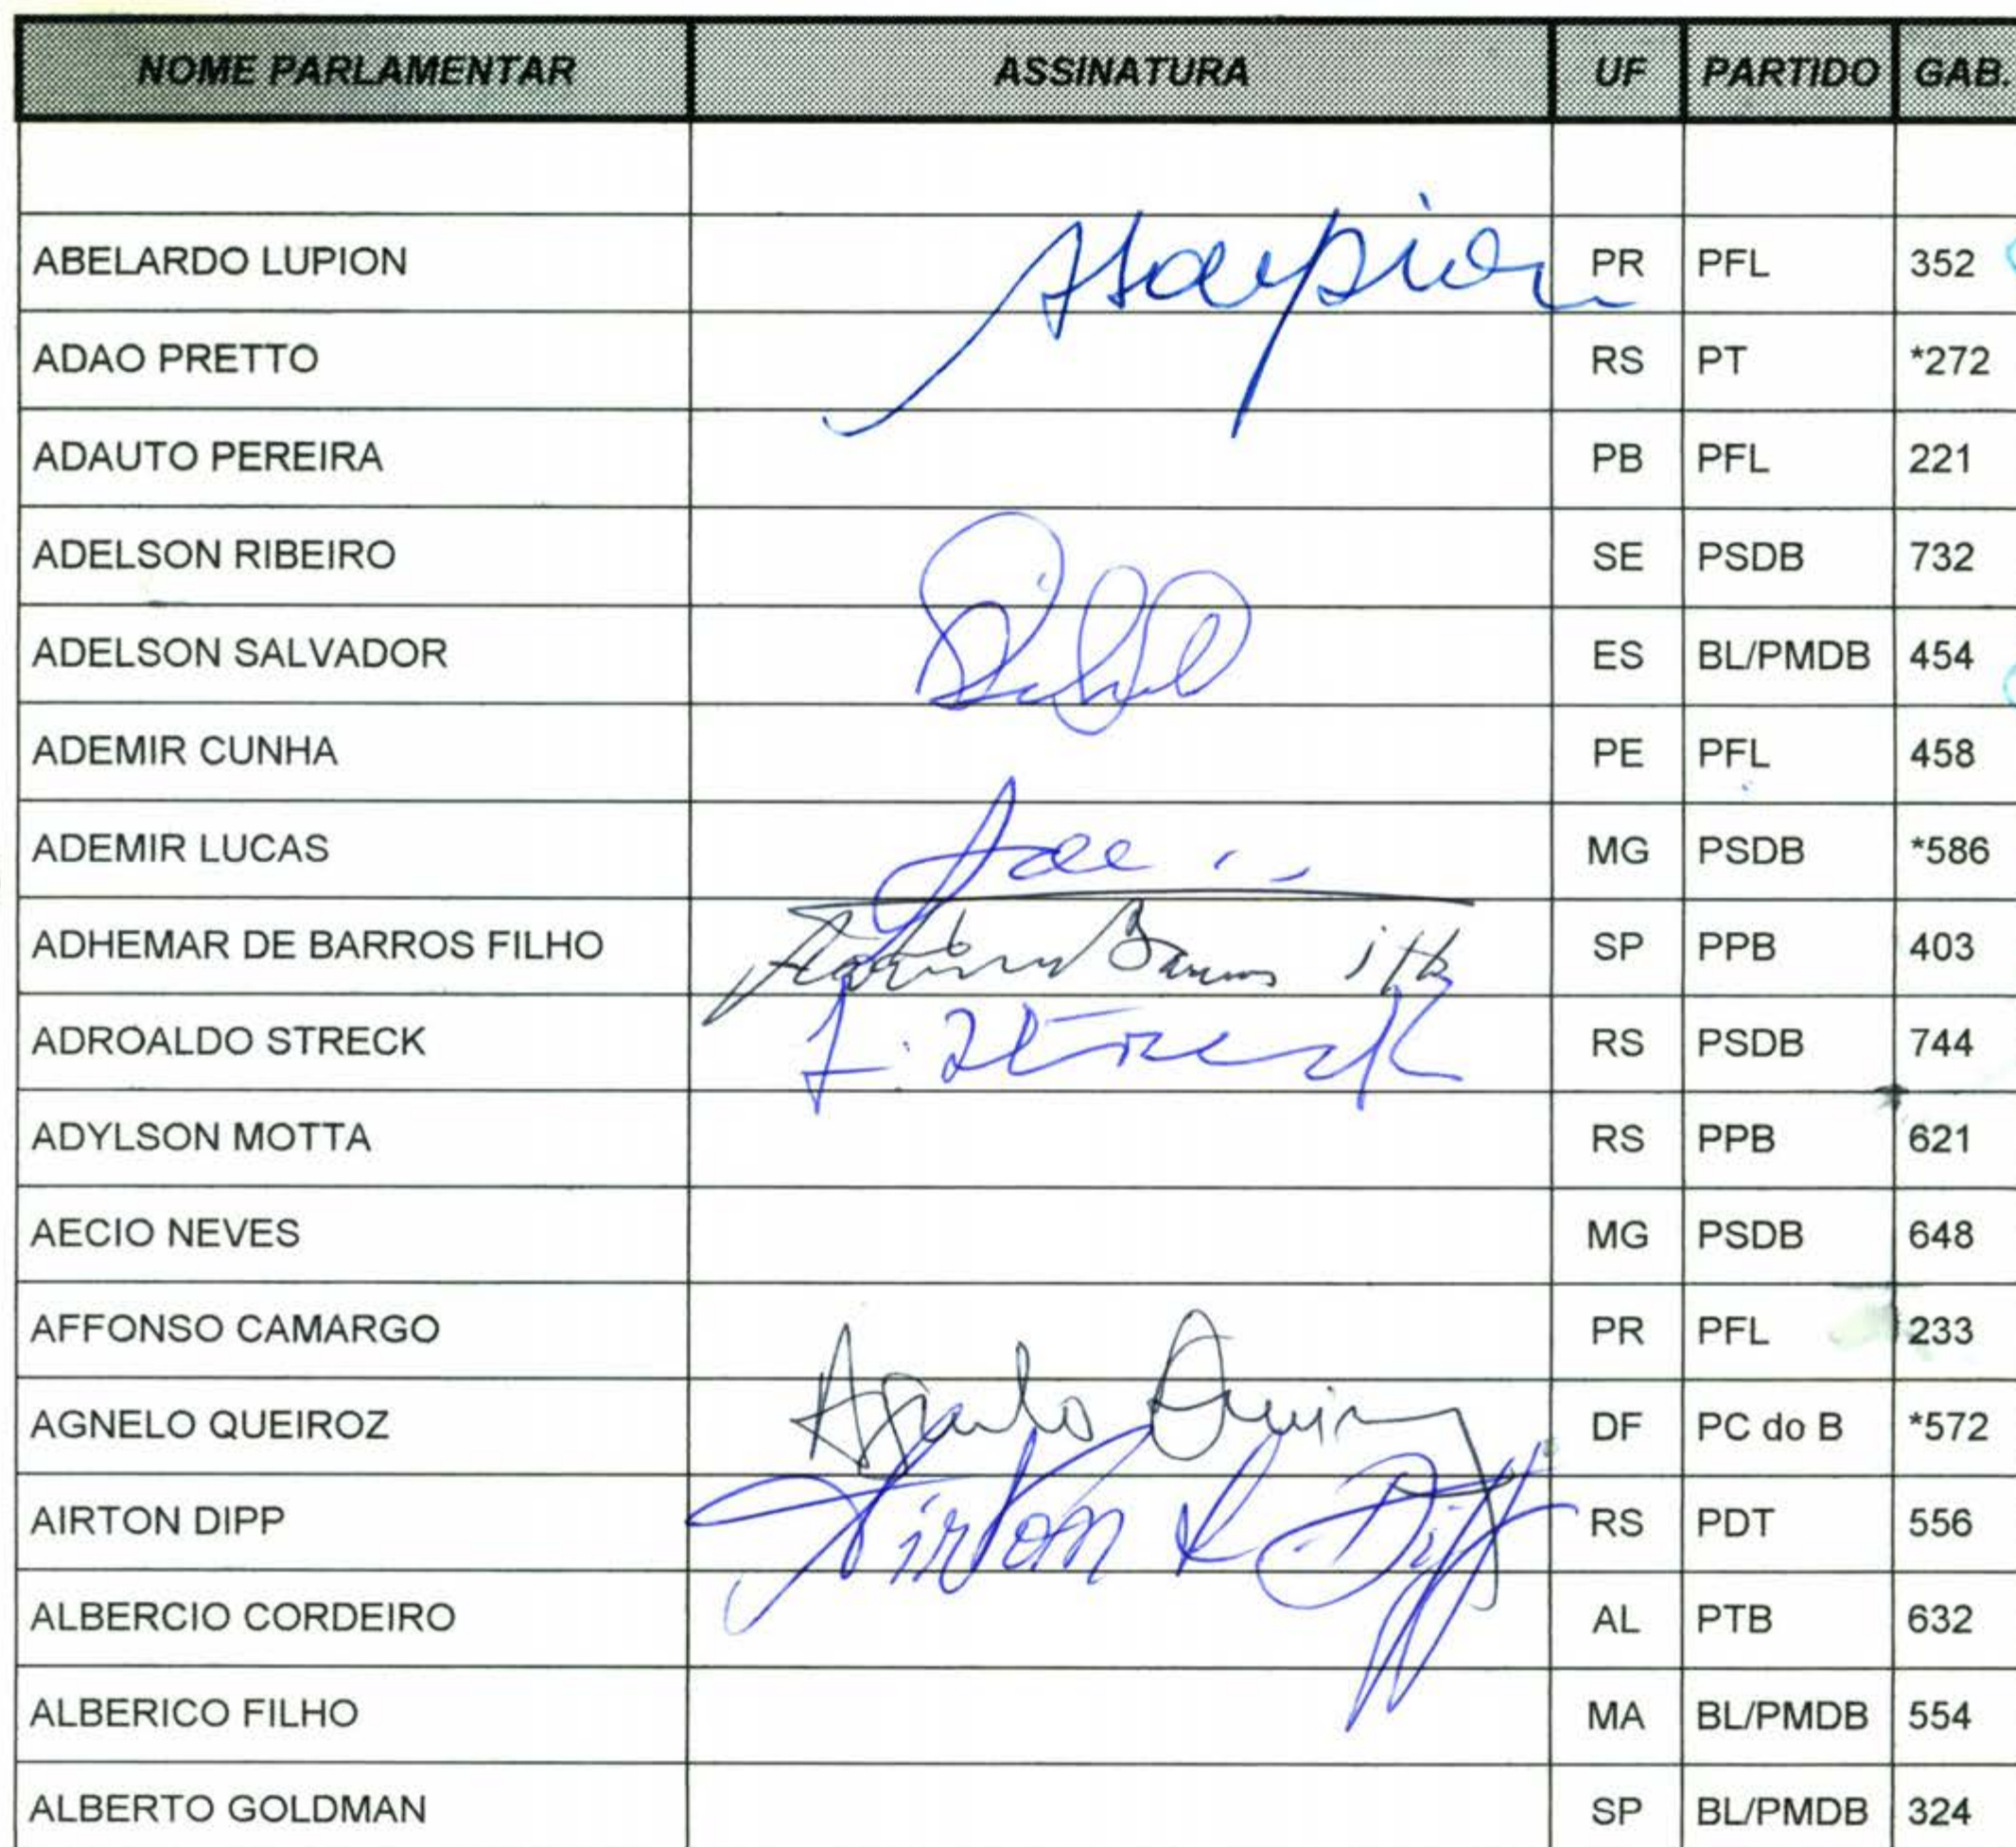 NOME PARLAMENTAR ASSINATURA UF PARTIDO GAB.
ABELARDO LUPION PR PFL 352
ADAO PRETTO RS PT *272
ADAUTO PEREIRA PB PFL 221
ADELSON RIBEIRO SE PSDB 732
ADELSON SALVADOR ES BL/PMDB 454
ADEMIR CUNHA PE PFL 458
ADEMIR LUCAS MG PSDB *586
ADHEMAR DE BARROS FILHO SP PPB 403
ADROALDO STRECK A. Streck RS PSDB 744
ADYLSON MOTTA RS PPB 621
AECIO NEVES MG PSDB 648
AFFONSO CAMARGO PR PFL 233
AGNELO QUEIROZ Agnelo Queiroz DF PC do B *572
AIRTON DIPP Airton Dipp RS PDT 556
ALBERCIO CORDEIRO AL PTB 632
ALBERICO FILHO MA BL/PMDB 554
ALBERTO GOLDMAN SP BL/PMDB 324